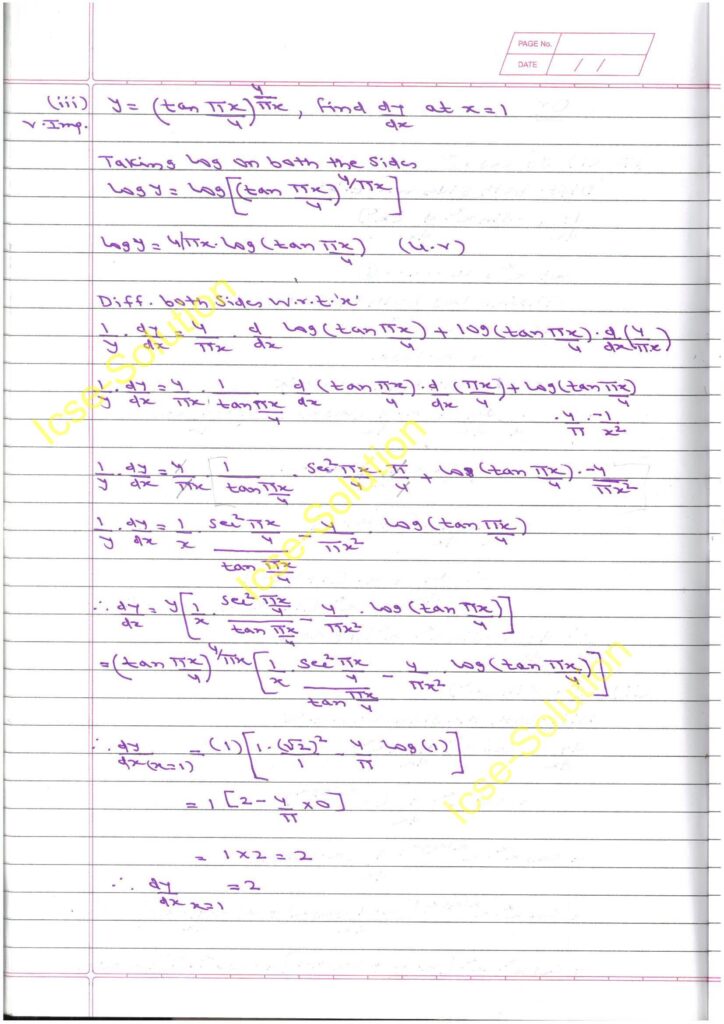 PAGE No.
DATE / /
(iii) y = (tan πx/4)^(4/πx), find dy/dx at x=1
v.Imp.
Taking log on both the sides
log y = log[(tan πx/4)^(4/πx)]
log y = 4/πx · log(tan πx/4) (u.v)
Diff. both sides w.r.t. 'x'
1/y · dy/dx = 4/πx · d/dx log(tan πx/4) + log(tan πx/4) · d/dx (4/πx)
1/y · dy/dx = 4/πx · 1/(tan πx/4) · d/dx (tan πx/4) · d/dx (πx/4) + log(tan πx/4)
· 4/π · -1/x²
1/y · dy/dx = 4/πx · 1/(tan πx/4) · sec² πx/4 · π/4 + log(tan πx/4) · -4/πx²
1/y · dy/dx = 1/x · (sec² πx/4)/(tan πx/4) - 4/πx² · log(tan πx/4)
∴ dy/dx = y[1/x · (sec² πx/4)/(tan πx/4) - 4/πx² · log(tan πx/4)]
= (tan πx/4)^(4/πx) [1/x · (sec² πx/4)/(tan πx/4) - 4/πx² · log(tan πx/4)]
∴ dy/dx (x=1) = (1)[1·(√2)²/1 - 4/π log(1)]
= 1 [2 - 4/π × 0]
= 1 × 2 = 2
∴ dy/dx x=1 = 2
Icse-Solution
Icse-Solution
Icse-Solution